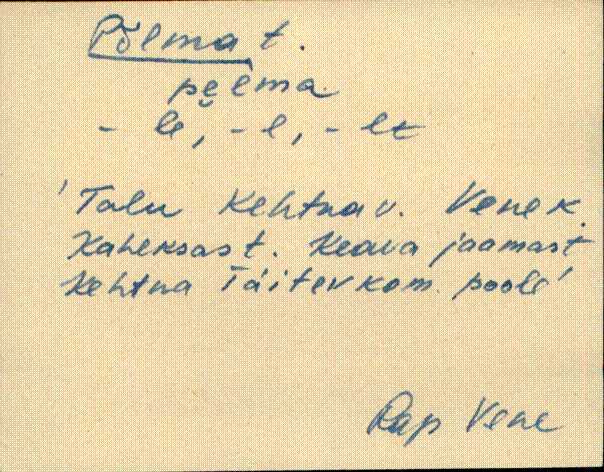 Põlma t.
pe̮l̀ma
- le, - l, - lt
'Talu Kehtna v. Vene k.
Kaheksas t. Keava jaamast
Kehtna Täitevkom. poole'
Rap Vene